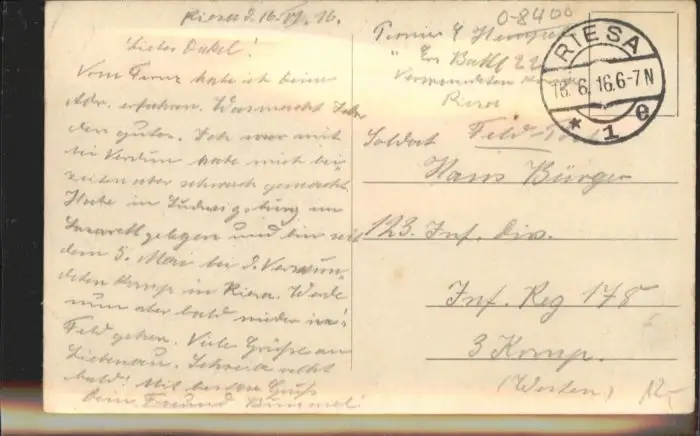 Riesa d. 16. VI. 16.
Lieber Onkel!
Vom Franz habe ich deine
Adr. erfahren. Was macht
den guten. Ich war mit
bei Verdun habe mich bei
zeiten aber schwach gemacht.
Habe in Ludwigsburg im
Lazarett gelegen und bin seit
dem 5. Mai bei d. Verwun-
deten Komp in Riesa. Werde
nun aber bald wieder in's
Feld gehen. Viele Grüße an
Schreibe recht
bald! Mit besten Gruß
dein Freund Bummel!
0-8400
Ers Batl
Verwundeten
Riesa
RIESA
16.6.16.6-7N
* 1 e
Soldat
Feld-Post
Hans Bürger
123. Inf. Div.
Inf. Reg 178
3 Komp.
(Westen)
12.-